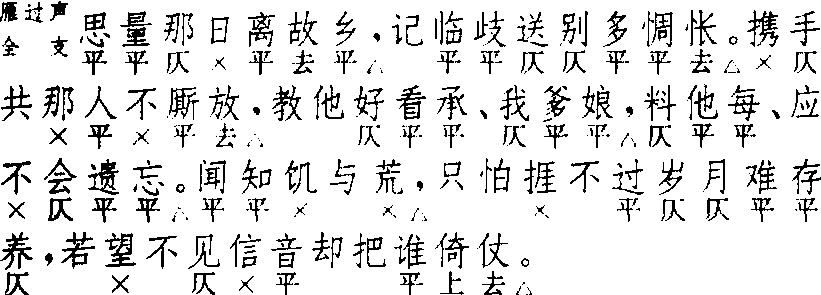 雁过声
全 支
思量那日离故乡，记临歧送别多惆怅。携手
平平仄×平去平△ 平平仄仄平平去△×仄
共那人不厮放，教他好看承、我爹娘，料他每、应
×平×平去△ 仄平平 仄平平△仄平平
不会遗忘。闻知饥与荒，只怕捱不过岁月难存
×仄平平△平平× ×△ × 平仄仄平平
养，若望不见信音却把谁倚仗。
仄 × 仄×平 平上去△